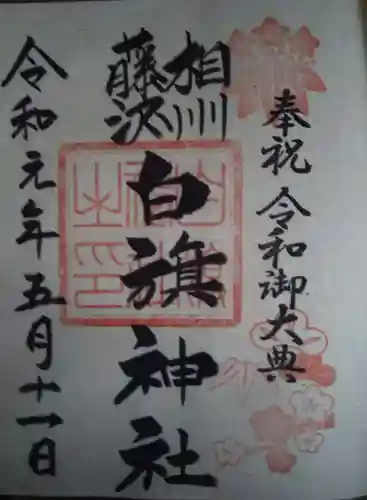 奉祝 令和御大典
相州
藤沢
白旗神社
令和元年五月十一日